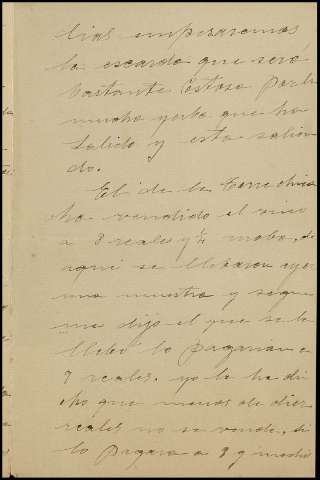 lias empezaremos
la escarda que sera
bastante costosa por la
mucha yerba que ha
salido y esta salien
do.
El de la Torre chica
ha vendido el vino
a 8 reales y ¼ moba, de
aqui se llebaron aye
una muestra y segu
me dijo el que se la
llebó lo pagarian a
9 reales. yo le he di
cho que menos de diez
reales no se vende, si
lo pagara a 9 y medio